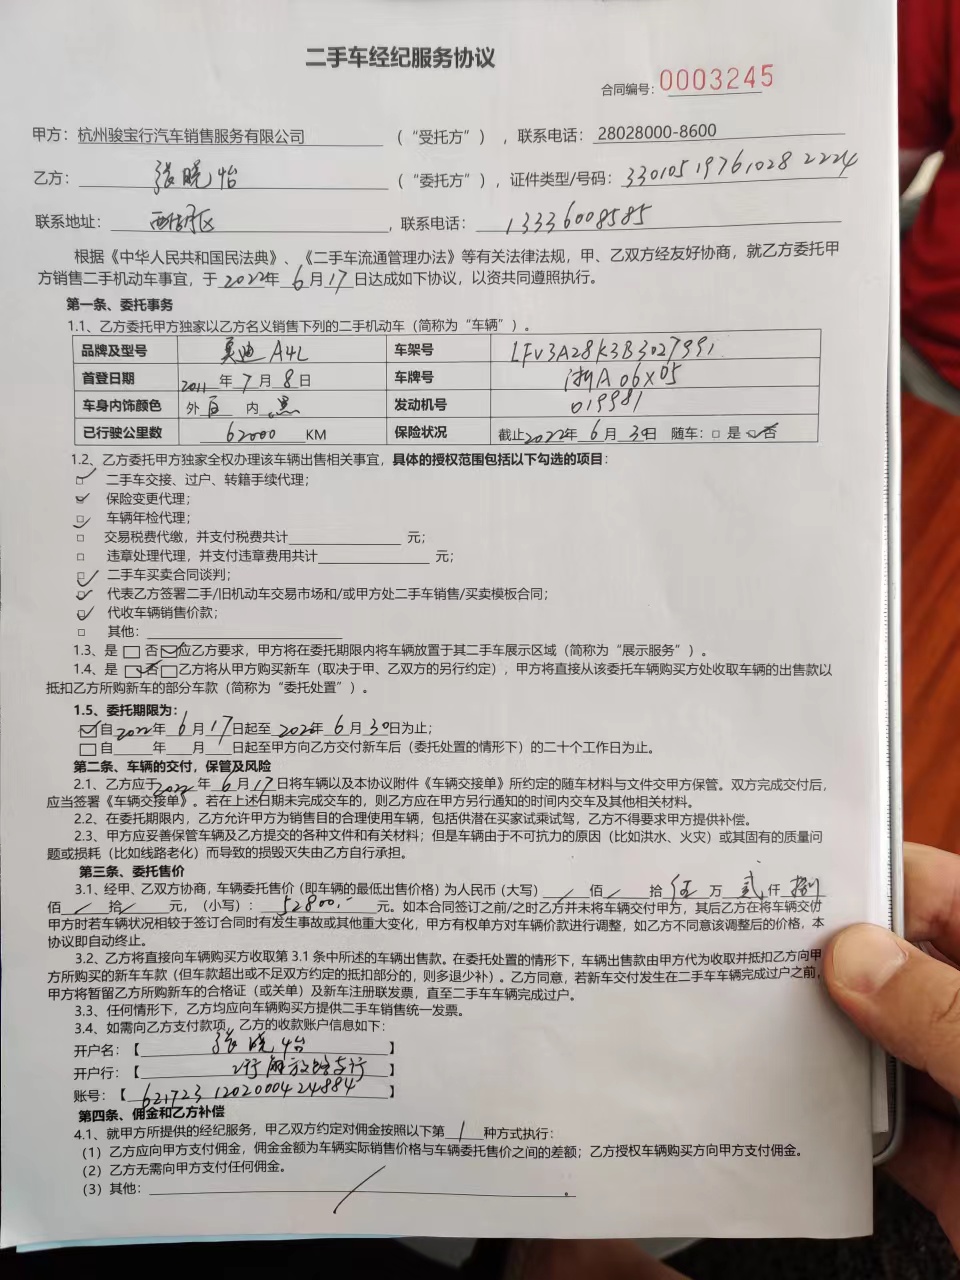 二手车经纪服务协议
合同编号：0003245
甲方：杭州骏宝行汽车销售服务有限公司（“受托方”），联系电话：28028000-8600
乙方：张晓怡（“委托方”），证件类型/号码：330105197610282224
联系地址：西湖区，联系电话：13336008585
根据《中华人民共和国民法典》、《二手车流通管理办法》等有关法律法规，甲、乙双方经友好协商，就乙方委托甲
方销售二手机动车事宜，于2022年6月17日达成如下协议，以资共同遵照执行。
第一条、委托事务
1.1、乙方委托甲方独家以乙方名义销售下列的二手机动车（简称为“车辆”）。
品牌及型号 奥迪A4L 车架号 LFV3A28K3B3027991
首登日期 2011年7月8日 车牌号 浙A06X05
车身内饰颜色 外白 内黑 发动机号 019981
已行驶公里数 62000 KM 保险状况 截止2022年6月30日 随车：□是☑否
1.2、乙方委托甲方独家全权办理该车辆出售相关事宜，具体的授权范围包括以下勾选的项目：
☑ 二手车交接、过户、转籍手续代理；
☑ 保险变更代理；
☑ 车辆年检代理；
□ 交易税费代缴，并支付税费共计 元；
□ 违章处理代理，并支付违章费用共计 元；
☑ 二手车买卖合同谈判；
☑ 代表乙方签署二手/旧机动车交易市场和/或甲方处二手车销售/买卖模板合同；
☑ 代收车辆销售价款；
□ 其他：
1.3、是□否☑应乙方要求，甲方将在委托期限内将车辆放置于其二手车展示区域（简称为“展示服务”）。
1.4、是☑否□乙方将从甲方购买新车（取决于甲、乙双方的另行约定），甲方将直接从该委托车辆购买方处收取车辆的出售款以
抵扣乙方所购新车的部分车款（简称为“委托处置”）。
1.5、委托期限为：
☑自2022年6月17日起至2022年6月30日为止；
□自 年 月 日起至甲方向乙方交付新车后（委托处置的情形下）的二十个工作日为止。
第二条、车辆的交付，保管及风险
2.1、乙方应于2022年6月17日将车辆以及本协议附件《车辆交接单》所约定的随车材料与文件交甲方保管。双方完成交付后，
应当签署《车辆交接单》。若在上述日期未完成交车的，则乙方应在甲方另行通知的时间内交车及其他相关材料。
2.2、在委托期限内，乙方允许甲方为销售目的合理使用车辆，包括供潜在买家试乘试驾，乙方不得要求甲方提供补偿。
2.3、甲方应妥善保管车辆及乙方提交的各种文件和有关材料；但是车辆由于不可抗力的原因（比如洪水、火灾）或其固有的质量问
题或损耗（比如线路老化）而导致的损毁灭失由乙方自行承担。
第三条、委托售价
3.1、经甲、乙双方协商，车辆委托售价（即车辆的最低出售价格）为人民币（大写）/佰/拾伍万贰仟捌
佰/拾/元，（小写）：52800.-元。如本合同签订之前/之时乙方并未将车辆交付甲方，其后乙方在将车辆交付
甲方时若车辆状况相较于签订合同时有发生事故或其他重大变化，甲方有权单方对车辆价款进行调整，如乙方不同意该调整后的价格，本
协议即自动终止。
3.2、乙方将直接向车辆购买方收取第 3.1 条中所述的车辆出售款。在委托处置的情形下，车辆出售款由甲方代为收取并抵扣乙方向甲
方所购买的新车车款（但车款超出或不足双方约定的抵扣部分的，则多退少补）。乙方同意，若新车交付发生在二手车车辆完成过户之前，
甲方将暂留乙方所购新车的合格证（或关单）及新车注册联发票，直至二手车车辆完成过户。
3.3、任何情形下，乙方均应向车辆购买方提供二手车销售统一发票。
3.4、如需向乙方支付款项，乙方的收款账户信息如下：
开户名：【张晓怡】
开户行：【工行解放路支行】
账号：【6217231202000424884】
第四条、佣金和乙方补偿
4.1、就甲方所提供的经纪服务，甲乙双方约定对佣金按照以下第1种方式执行：
（1）乙方应向甲方支付佣金，佣金金额为车辆实际销售价格与车辆委托售价之间的差额；乙方授权车辆购买方向甲方支付佣金。
（2）乙方无需向甲方支付任何佣金。
（3）其他：/。